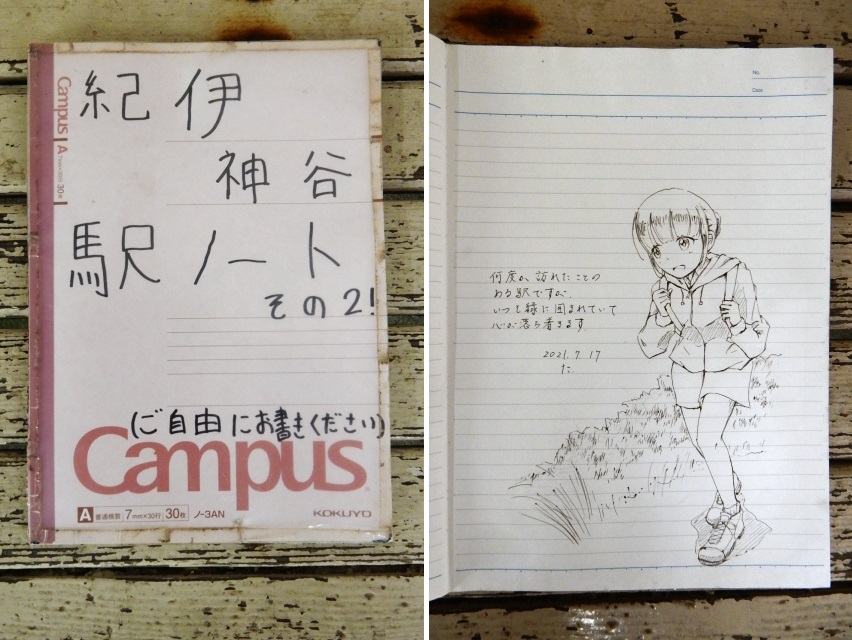 Campus
A
7mm×30行
30枚
紀伊
神谷
駅ノート
その2!
(ご自由にお書きください)
Campus
A 普通横罫 7mm×30行 30枚 ノ-3AN
KOKUYO
No.
Date
何度か訪れたことの
ある駅ですが、
いつも緑に囲まれていて
心が落ち着きます
2021.7.17
た